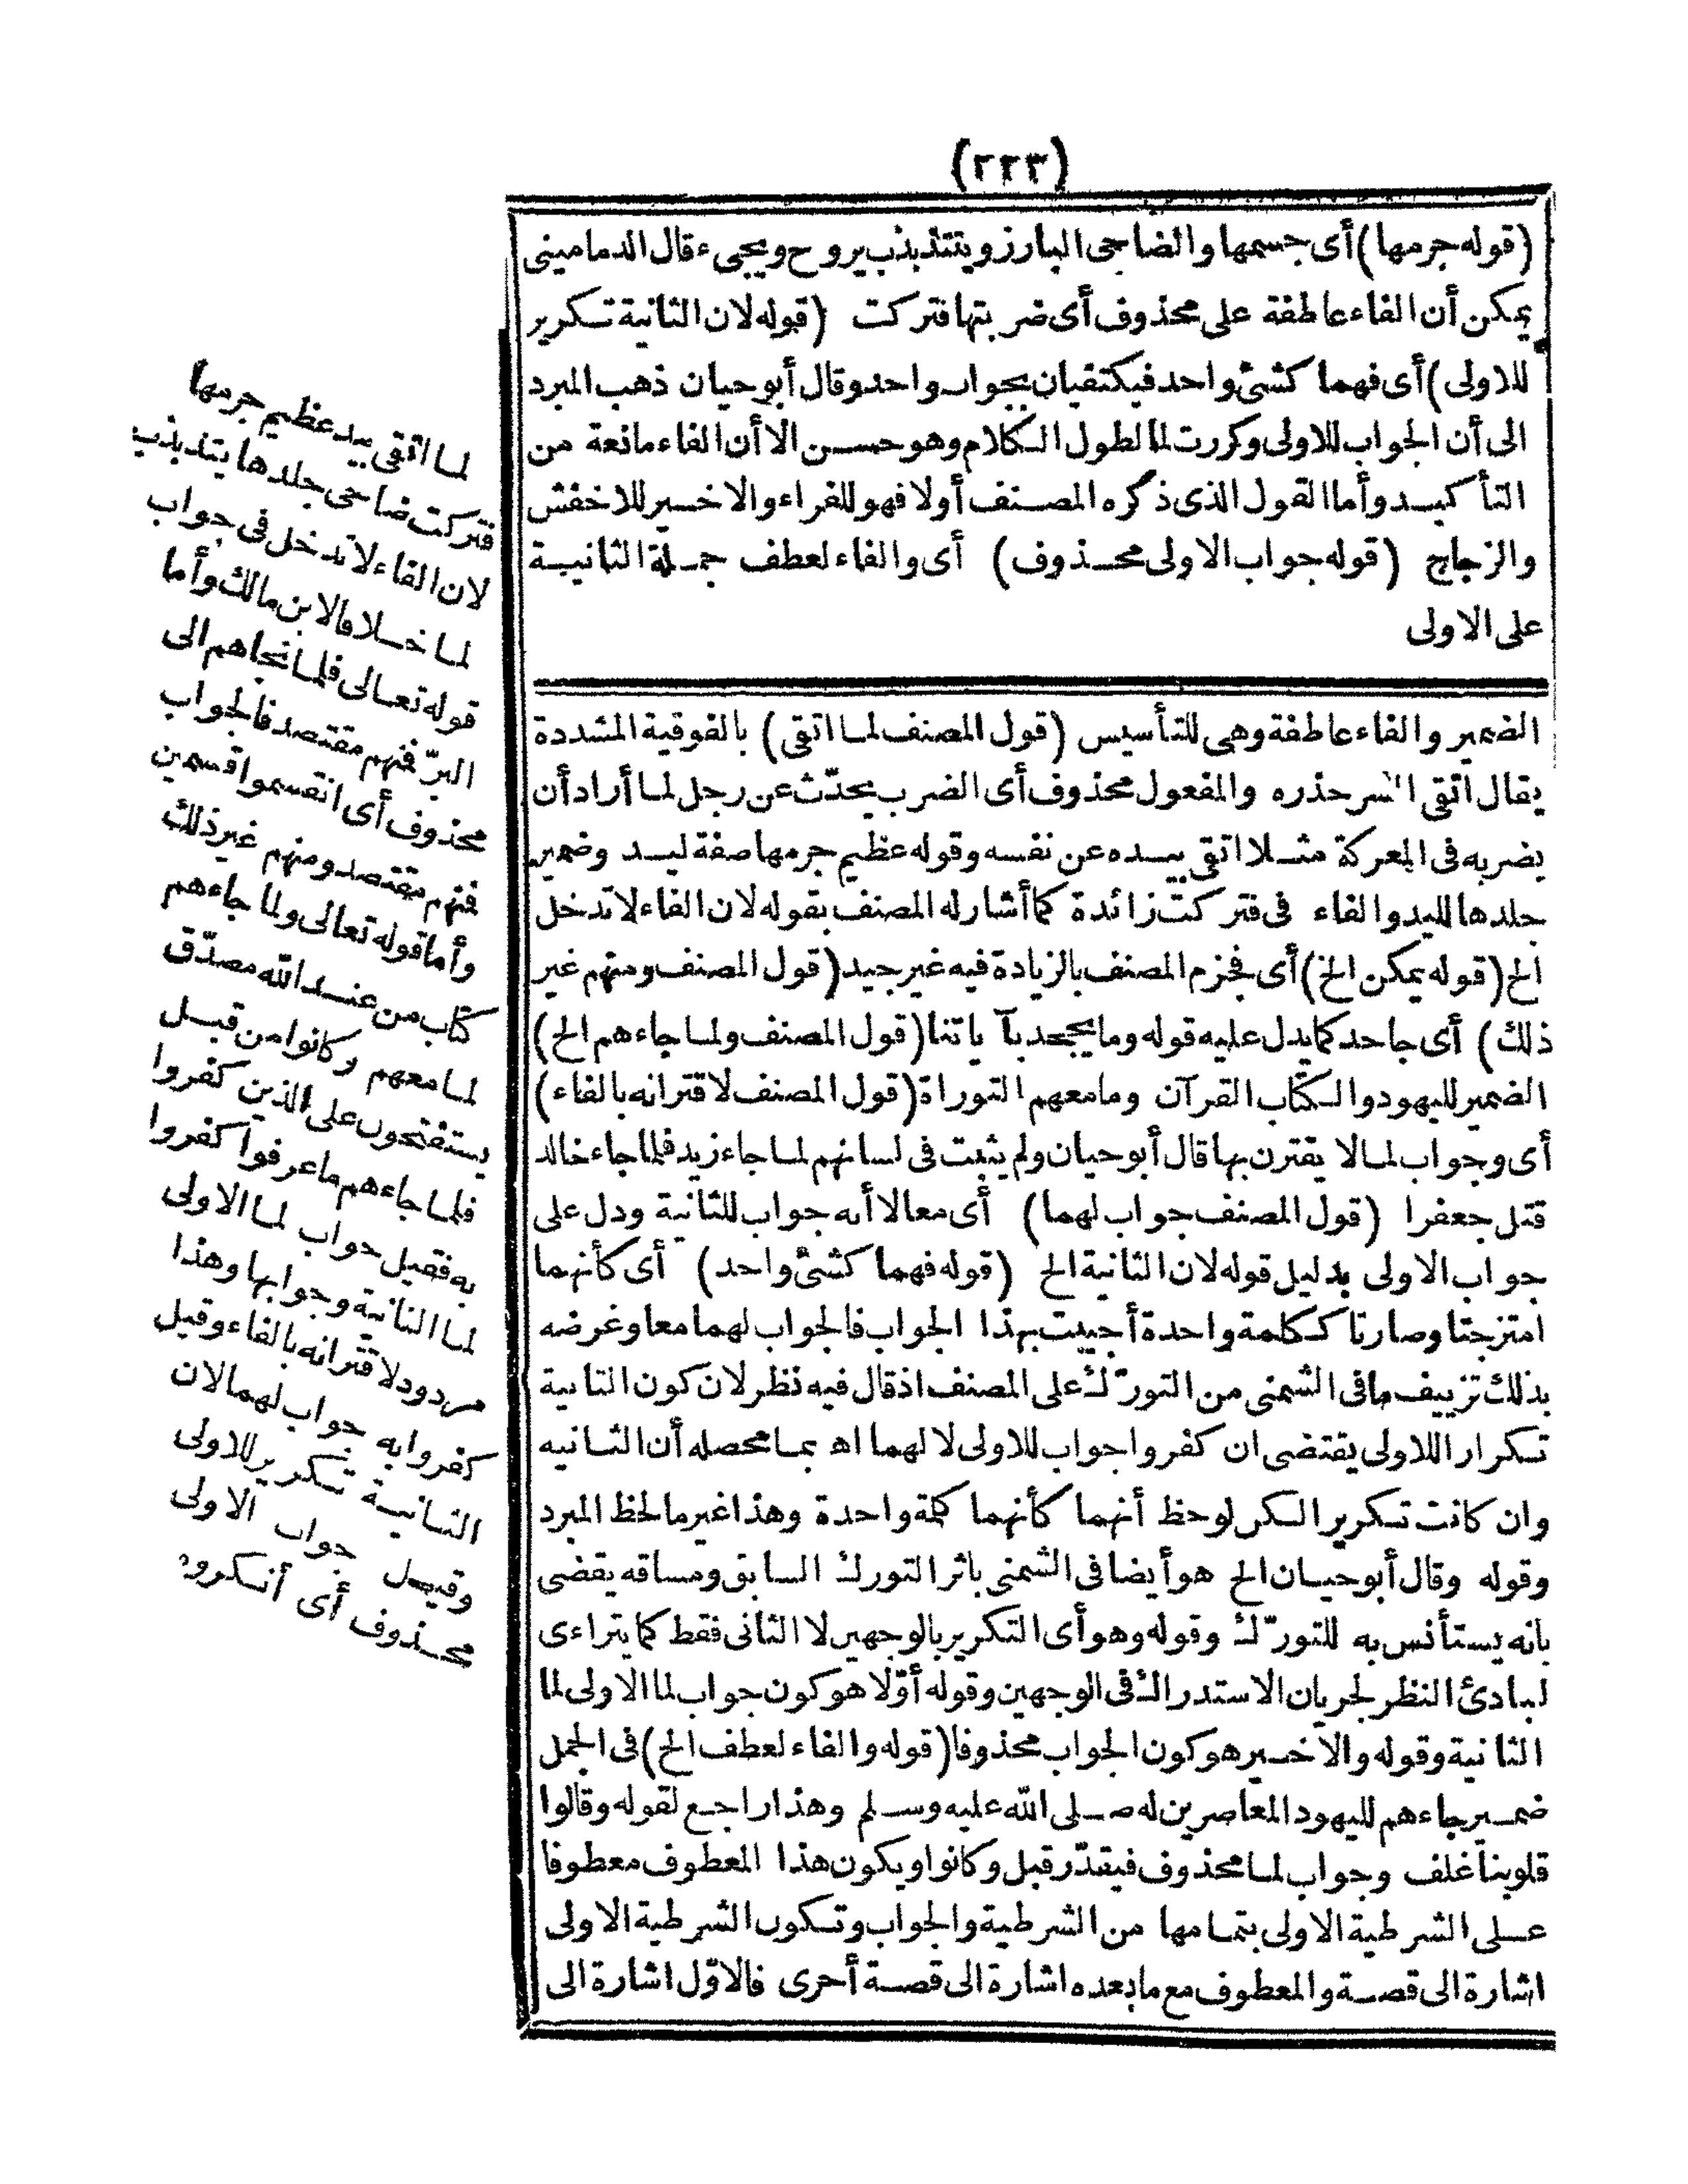 (٢٢٣)
(قوله جرمها) أى جسمها والضاحى البارز ويتتذبذب يروح ويجىء قال الدمامينى
يمكن أن الفاء عاطفة على محذوف أى ضربتها فتركت (قوله لان الثانية تكرير
للاولى) أى فهما كشئ واحد فيكتفيان بجواب واحد وقال أبوحيان ذهب المبرد
الى أن الجواب للاولى وكررت لما لطول الكلام وهو حسن الا أن الفاء مانعة من
التأكيد وأما القول الذى ذكره المصنف أولا فهو للفراء والاخير للاخفش
والزجاج (قوله جواب الاولى محذوف) أى والفاء لعطف جملة الثانية
على الاولى
الضمير والفاء عاطفة وهى للتأسيس (قول المصنف لما اتقى) بالفوقية المشددة
يقال اتقى الشر حذره والمفعول محذوف أى الضرب يحدّث عن رجل لما أراد أن
يضربه فى المعركة مثلا اتقى بيده عن نفسه وقوله عظيم جرمها صفة ليد وضمير
جلدها لليد والفاء فى فتركت زائدة كما أشار له المصنف بقوله لان الفاء لا تدخل
الخ (قوله يمكن الخ) أى فجزم المصنف بالزيادة فيه غير جيد (قول المصنف ومنهم غير
ذلك) أى جاحد كما يدل عليه قوله وما يجحد بآياتنا (قول المصنف ولما جاءهم الخ)
الضمير لليهود والكتاب القرآن وما معهم التوراة (قول المصنف لاقترانه بالفاء)
أى وجواب لما لا يقترن بها قال أبوحيان ولم يثبت فى لسانهم لما جاء زيد فلما جاء خالد
قتل جعفرا (قول المصنف جواب لهما) أى معا لا أنه جواب للثانية ودل على
جواب الاولى بدليل قوله لان الثانية الخ (قوله فهما كشئ واحد) أى كأنهما
امتزجتا وصارتا ككلمة واحدة أجيبت بهذا الجواب فالجواب لهما معا وغرضه
بذلك تزييف ما فى الشمنى من التورّك على المصنف اذ قال فيه نظر لان كون الثانية
تكرار اللاولى يقتضى ان كفروا جواب للاولى لا لهما اه بما محصله أن الثانيه
وان كانت تكرير الكن لوحظ أنهما كأنهما كلمة واحدة وهذا غير ما لحظ المبرد
وقوله وقال أبوحيان الخ هو أيضا فى الشمنى باثر التورك السابق ومساقه يقضى
بانه يستأنس به للتورّك وقوله وهو أى التكرير بالوجهين لا الثانى فقط كما يتراءى
لبادئ النظر لجريان الاستدراك فى الوجهين وقوله أوّلا هو كون جواب لما الاولى لما
الثانية وقوله والاخير هو كون الجواب محذوفا (قوله والفاء لعطف الخ) فى الجمل
ضمير جاءهم لليهود المعاصرين له صلى الله عليه وسلم وهذا راجع لقوله وقالوا
قلوبنا غلف وجواب لما محذوف فيقدّر قبل وكانوا ويكون هذا المعطوف معطوفا
على الشرطية الاولى بتمامها من الشرطية والجواب وتكون الشرطية الاولى
اشارة الى قصة والمعطوف مع ما بعده اشارة الى قصة أخرى فالاوّل اشارة الى
لما اتقى بيد عظيم جرمها
فتركت ضاحى جلدها يتذبذب
لان الفاء لا تدخل فى جواب
لما خلافا لابن مالك وأما
قوله تعالى فلما نجاهم الى
البرّ فمنهم مقتصد فالجواب
محذوف أى انقسموا قسمين
فمنهم مقتصد ومنهم غير ذلك
وأما قوله تعالى ولما جاءهم
كتاب من عند الله مصدّق
لما معهم وكانوا من قبل
يستفتحون على الذين كفروا
فلما جاءهم ما عرفوا كفروا
به فقيل جواب لما الاولى
لما الثانية وجوابها وهذا
مردود لاقترانه بالفاء وقيل
كفروا به جواب لهما لان
الثانية تكرير للاولى
وقيل جواب الاولى
محذوف أى أنكروه